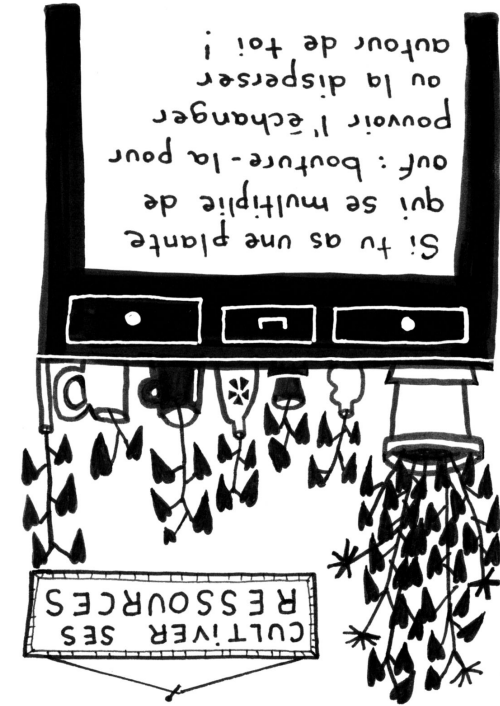 CULTIVER SES
RESSOURCES
Si tu as une plante
qui se multiplie de
ouf : bouture-la pour
pouvoir l'échanger
ou la disperser
autour de toi !